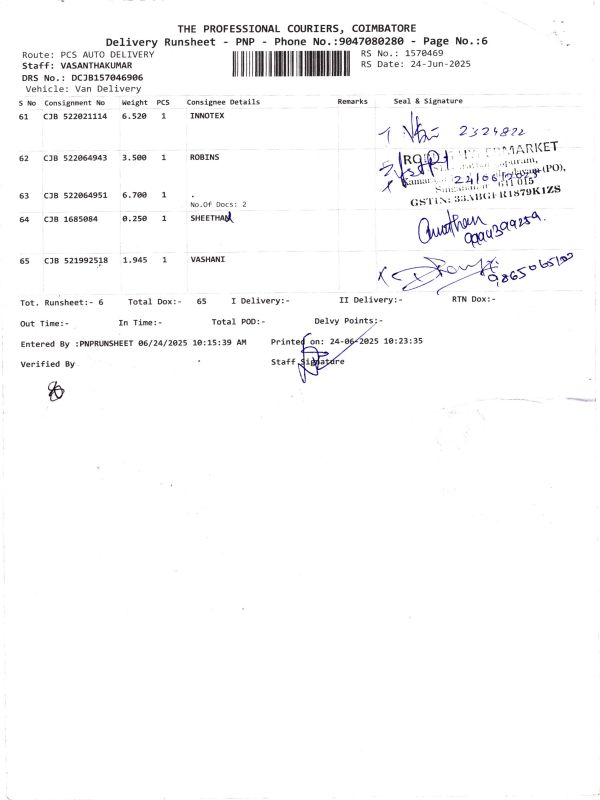 THE PROFESSIONAL COURIERS, COIMBATORE
Delivery Runsheet - PNP - Phone No.:9047080280 - Page No.:6
Route: PCS AUTO DELIVERY
RS No.: 1570469
Staff: VASANTHAKUMAR
RS Date: 24-Jun-2025
DRS No.: DCJB157046906
Vehicle: Van Delivery
S No Consignment No Weight PCS Consignee Details Remarks Seal & Signature
61 CJB 522021114 6.520 1 INNOTEX
2324822
62 CJB 522064943 3.500 1 ROBINS
MARKET
24/06/2025
641 015
GSTIN: 33ABGFR1879K1ZS
63 CJB 522064951 6.700 1
No.Of Docs: 2
64 CJB 1685084 0.250 1 SHEETHAL
65 CJB 521992518 1.945 1 VASHANI
Tot. Runsheet:- 6 Total Dox:- 65 I Delivery:- II Delivery:- RTN Dox:-
Out Time:- In Time:- Total POD:- Delvy Points:-
Entered By :PNPRUNSHEET 06/24/2025 10:15:39 AM Printed on: 24-06-2025 10:23:35
Verified By Staff Signature